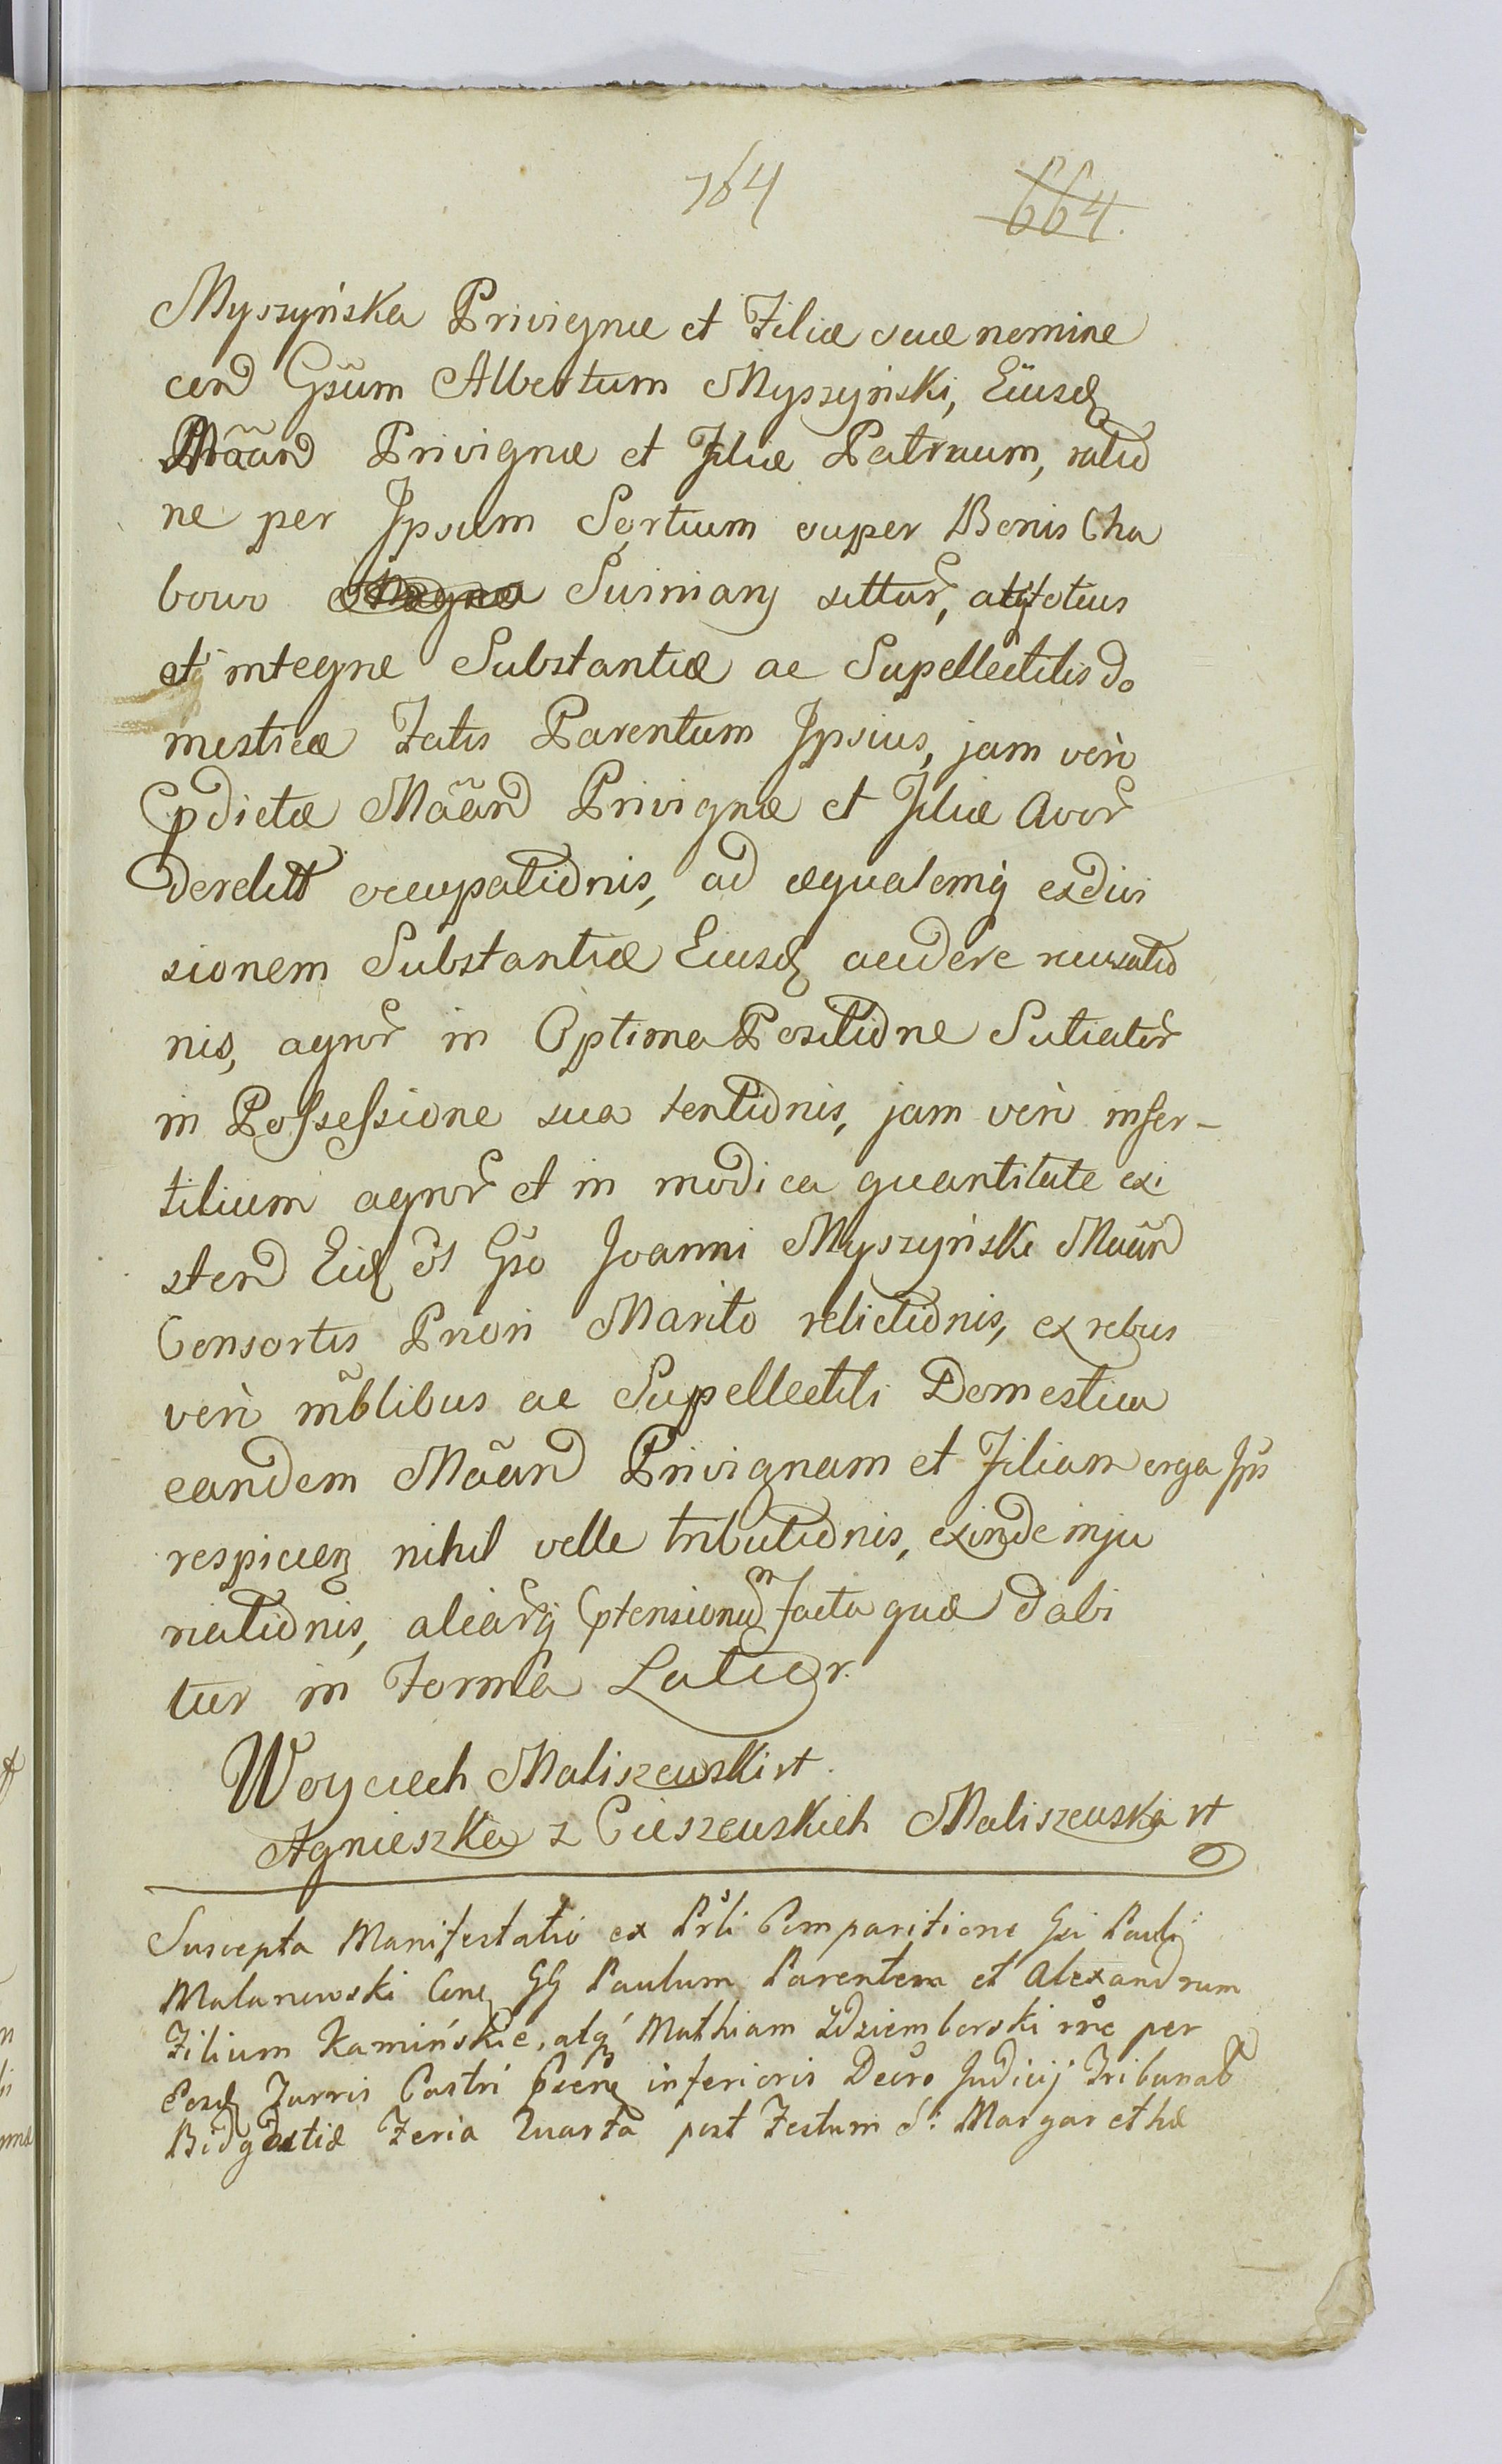 764
664.
Myszyńska Privignæ et Filiæ suæ nomine
con Gsum Albertum Myszyński, Eiusd
Mãan Privignæ et Filiæ Patruum, ratio
ne per Ipsum Sortium super Bonis Cha
bowo Suiniary sittar, atq totius
et integræ Substantiæ ac Supellectilis do
mesticæ Fatis Parentum Ipsius, jam verò
pdictæ Mãan Privignæ et Filiæ Avor
derelitt occupationis, ad æqualemq exdivi
sionem Substantiæ Eiusd accedere recusatio
nis, agror in Optima Positione
in Possessione sua tentionis, jam verò infer-
tilium agror et in modica quantitate exi
sten Eid ol Gso Joanni Myszyński Mãan
Consortis Priori Marito relictionis, ex rebus
verò mblibus ac Supellectili Domestica
eandem Mãan Privignam et Filiam erga Ips
respicien nihil velle tributionis, exinde inju
riationis, aliarq ptensionum facta quæ dabi
tur in Forma Latior.
Woyciech Maliszewski
Agnieszka z Cieszewskich Maliszewska
Suscepta Manifestatio ex Prli Comparitione Gsi Pauli
Malanowski Con GG Paulum Parentem et Alexandrum
Filium Kamińskie, atq Mathiam Zdziemborski rne per
Eosd Turris Castri inferioris Decro Judicij Tribunal
Bidgostiæ Feria Quarta post Festum S: Margarethæ